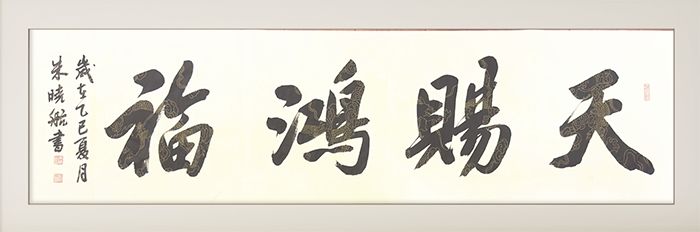 天賜鴻福
歲在乙巳夏月
朱曉航書